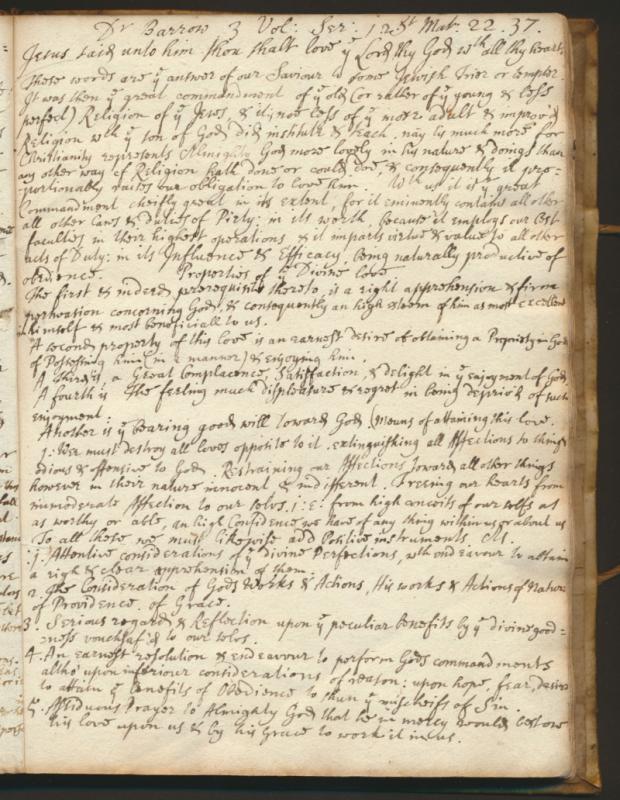 Dr Barrow 3 Vol: Ser: 1 2 St Mat: 22. 37.
Jesus said unto him thou shalt love ye Lord thy God wth all thy heart.
These words are ye answer of our Saviour to some Jewish Trier or tempter.
It was then ye great commandment of ye old (or rather of ye young & less
perfect) Religion of ye Jews, & it is no less of ye more adult & improv'd
Religion wch ye son of God did institute & teach. nay tis much more for
Christianity represents Almighty God more lovely in his nature & doings than
any other way of Religion hath done or could doe, & consequently it pro=
portionally raises our obligation to love him. Wth us it is ye great
Commandment cheifly great in its extent, for it eminently contains all other
all other Laws & Duties of Piety: in its worth, because it employs our best
faculties in their highest operations & it imparts virtue & value to all other
acts of Duty: in its Influence & Efficacy, being naturally productive of
obedience. Properties of ye Divine love
The first & indeed prerequisite thereto, is a right apprehension & firm
perswasion concerning God, & consequently an high esteem of him as most excellent
in himself & most beneficiall to us.
A second property of this love is an earnest desire of obtaining a Propriety in God
of Possessing him (in a manner) & enjoying him.
A third is a Great Complacence, Satisfaction, & delight in ye enjoyment of God
A fourth is The feeling much displeasure & regret in being depriv'd of such
enjoyment.
Another is ye Bearing good will toward God (Means of attaining this love.
1: Wee must destroy all loves opposite to it. extinguishing all Affections to things
odious & offensive to God. Restraining our Affections toward all other things
however in their nature innocent & indifferent. Freeing our hearts from
immoderate Affection to our selvs. i: E: from high conceits of our selfs as
as worthy or able, an high Confidence we have of any thing within us or about us
To all these we must likewise add Positive instruments, As.
1: Attentive considerations of ye divine Perfections, wth endeavour to obtain
a right & clear apprehension of them.
2. The Consideration of Gods Works & Actions, His works & Actions of Nature
of Providence, of Grace.
3. Serious regard & Reflection upon ye peculiar benefits by ye divine good=
ness vouchsaf'd to our selvs.
4. An earnest resolution & endeavour to perform Gods commandments
altho' upon inferiour considerations of reason; upon hope, fear, desire
to attain ye benefits of Obedience to shun ye mischeifs of Sin.
5. Assiduous Prayer to Almighty God that he in mercy would bestow
his love upon us & by his Grace to work it in us.